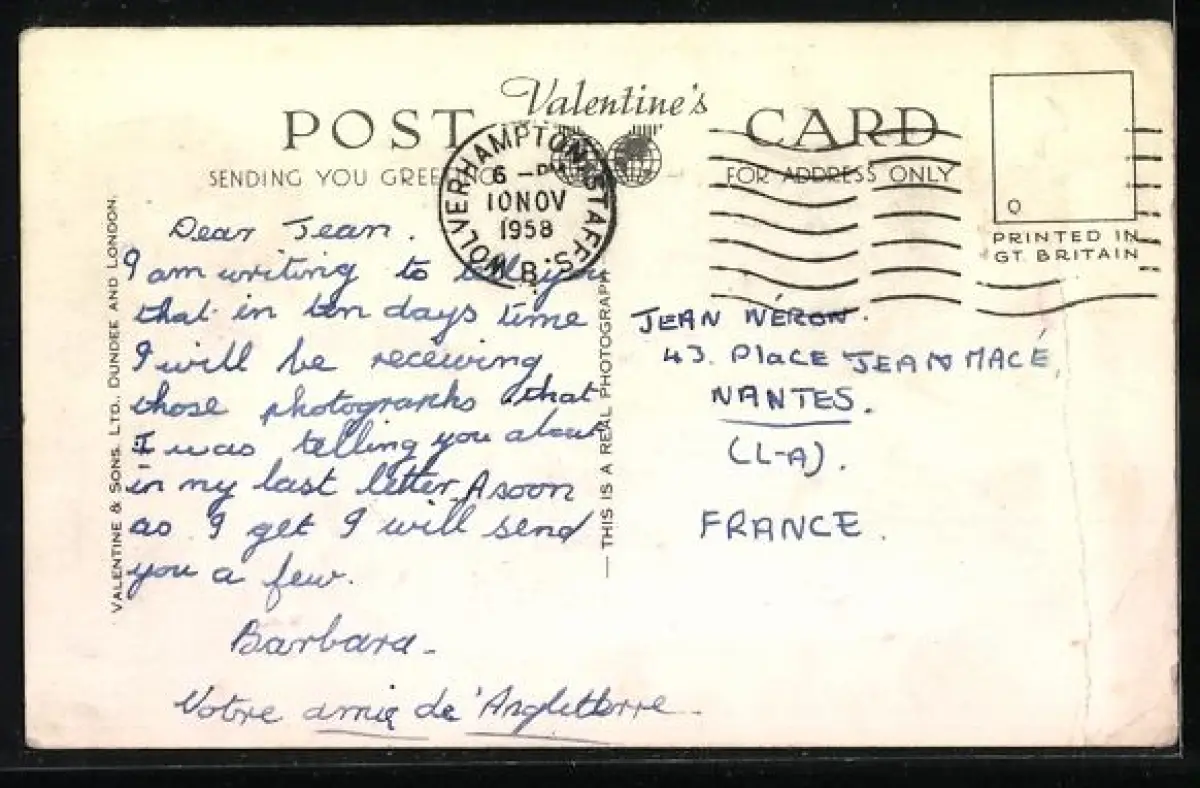 Valentine's
POST CARD
SENDING YOU GREETING
FOR ADDRESS ONLY
WOLVERHAMPTON STAFFS.
6 - PM
10 NOV
1958
B
Q
PRINTED IN
GT. BRITAIN
VALENTINE & SONS. LTD., DUNDEE AND LONDON.
Dear Jean.
I am writing to tell you
that in ten days time
I will be receiving
those photographs that
I was telling you about
in my last letter. A soon
as I get I will send
you a few.
Barbara.
Votre amie de'Angleterre.
— THIS IS A REAL PHOTOGRAPH
JEAN NÉRON.
43. Place JEAN MACÉ,
NANTES.
(L-A).
FRANCE.